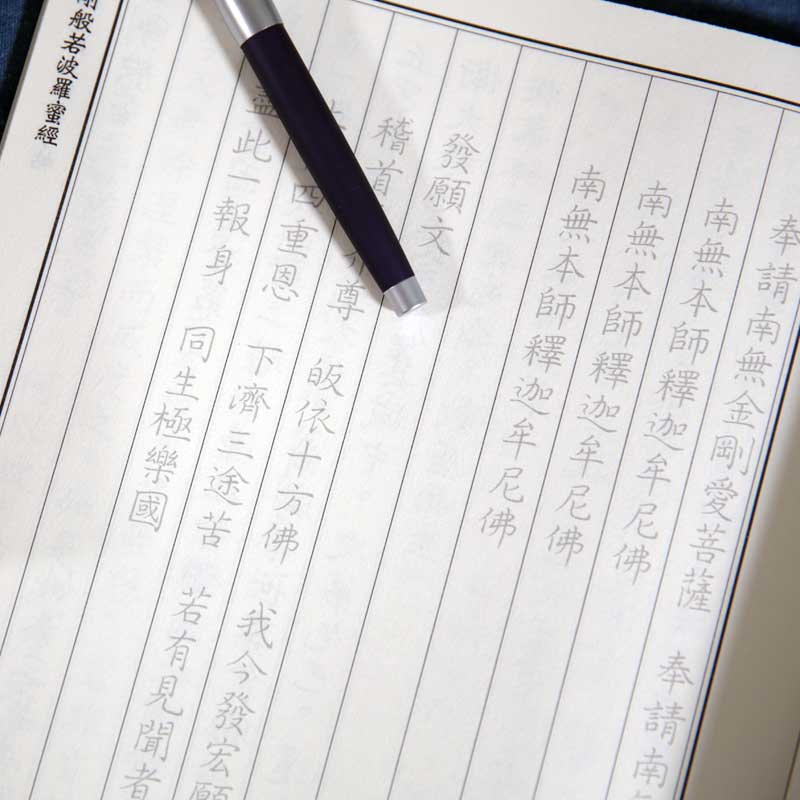 奉請南無金剛愛菩薩 奉請南無
南無本師釋迦牟尼佛
南無本師釋迦牟尼佛
南無本師釋迦牟尼佛
發願文
稽首尊 皈依十方佛 我今發宏願
四重恩 下濟三途苦 若有見聞者
盡此一報身 同生極樂國
剛般若波羅蜜經